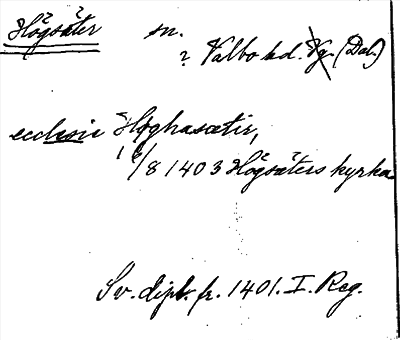 Högsäter sn.
? Valbo hd. Vg. (Dal.)
ecclesie Høghasætir,
16/8 1403 Högsäters kyrka
Sv. dipl. fr. 1401. I. Reg.